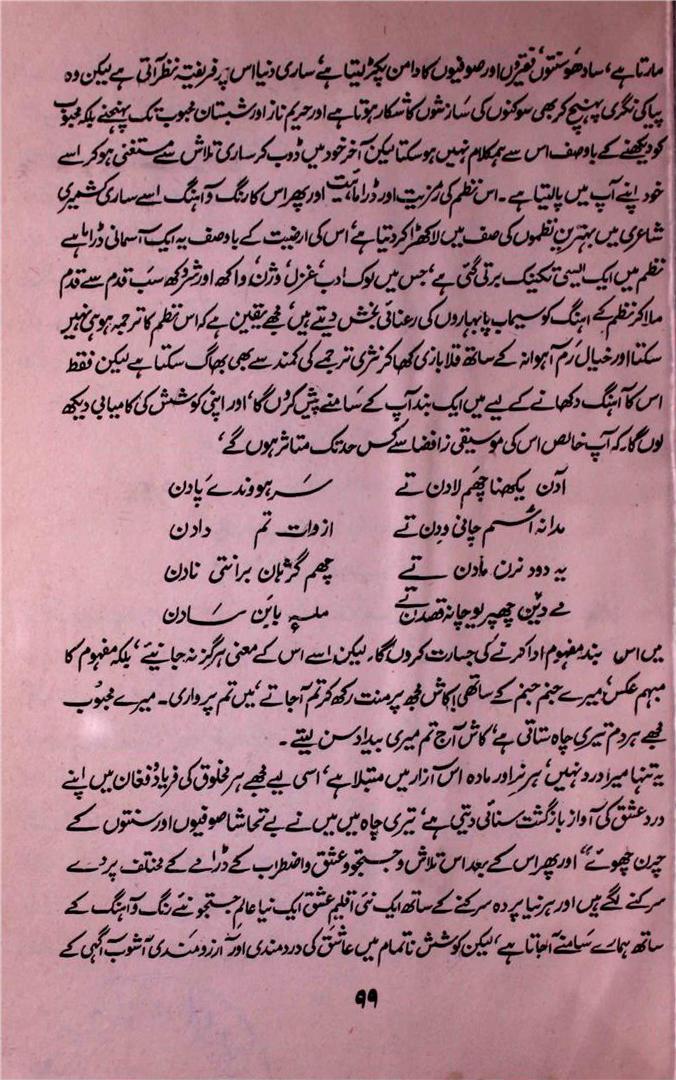 مارتا ہے، سادھو سنتوں، فقیروں اور صوفیوں کا دامن پکڑ لیتا ہے، ساری دنیا اس پر فریفتہ نظر آتی ہے لیکن وہ
پیا کی نگری پہنچ کر بھی سوکنوں کی سازشوں کا شکار ہوتا ہے اور حریم ناز اور شبستان محبوب تک پہنچنے بلکہ محبوب
کو دیکھنے کے باوصف اس سے ہمکلام نہیں ہو سکتا لیکن آخر خود میں ڈوب کر ساری تلاش سے مستغنی ہو کر اسے
خود اپنے آپ میں پا لیتا ہے۔ اس نظم کی رمزیت اور ڈرامائیت اور پھر اس کا رنگ و آہنگ اسے ساری کشمیری
شاعری میں بہترین نظموں کی صف میں لا کھڑا کر دیتا ہے، اس کی ارضیت کے باوصف یہ ایک آسمانی ڈراما ہے
نظم میں ایک ایسی تکنیک برتی گئی ہے، جس میں لوک ادب، غزل، وژن، واکھ اور شروکھ سب قدم سے قدم
ملا کر نظم کے آہنگ کو سیماب پا بہاروں کی رعنائی بخش دیتے ہیں، مجھے یقین ہے کہ اس نظم کا ترجمہ ہو ہی نہیں
سکتا اور خیال رم آہوانہ کے ساتھ قلابازی کھا کر نثری ترجمے کی کمند سے بھی بھاگ سکتا ہے لیکن فقط
اس کا آہنگ دکھانے کے لیے میں ایک بند آپ کے سامنے پیش کروں گا، اور اپنی کوشش کی کامیابی دیکھ
لوں گا۔ کہ آپ خالص اس کی موسیقی زا فضا سے کس حد تک متاثر ہوں گے،
آدن یکھنا چھم لادن تے سر ہووندے پادن
مدانہ اشم چانی ودن تے از وات تم دادن
یہ دود نرن مادن تے چھم گژہان برانتی نادن
مے دین چھپر یو چانہ قصدن تے ملیہ بابن سادن
میں اس بند مفہوم ادا کرنے کی جسارت کروں گا۔ لیکن اسے اس کے معنی ہرگز نہ جانیئے، بلکہ مفہوم کا
مبہم عکس، میرے جنم جنم کے ساتھی! کاش مجھ پر منت رکھ کر تم آجاتے، میں تم پر واری۔ میرے محبوب
مجھے ہر دم تیری چاہ ستاتی ہے، کاش آج تم میری بیداد سن لیتے۔
یہ تنہا میرا درد نہیں، ہر نر اور مادہ اس آزار میں مبتلا ہے، اسی لیے مجھے ہر مخلوق کی فریاد و فغان میں اپنے
درد عشق کی آواز بازگشت سنائی دیتی ہے، تیری چاہ میں میں نے بے تحاشا صوفیوں اور سنتوں کے
چرن چھوئے" اور پھر اس کے بعد اس تلاش و جستجو و عشق و اضطراب کے ڈرامے کے مختلف پردے
سرکنے لگے ہیں اور ہر نیا پردہ سرکنے کے ساتھ ایک نئی اقلیم عشق ایک نیا عالم جستجو نئے رنگ و آہنگ کے
ساتھ ہمارے سامنے آ جاتا ہے، لیکن کوشش ناتمام میں عاشق کی درد مندی اور آرزو مندی آشوب آگہی کے
۹۹